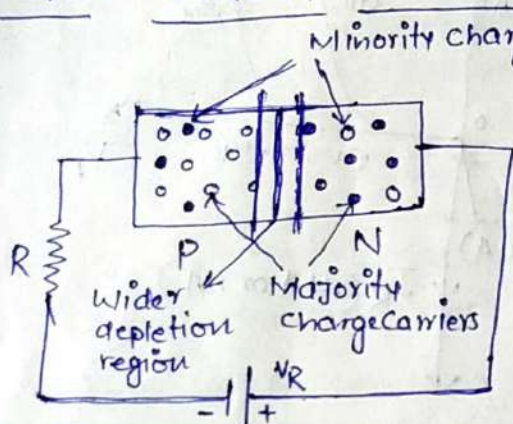 Minority char
P
N
R
Wider
depletion
region
Majority
chargeCarriers
VR
- +